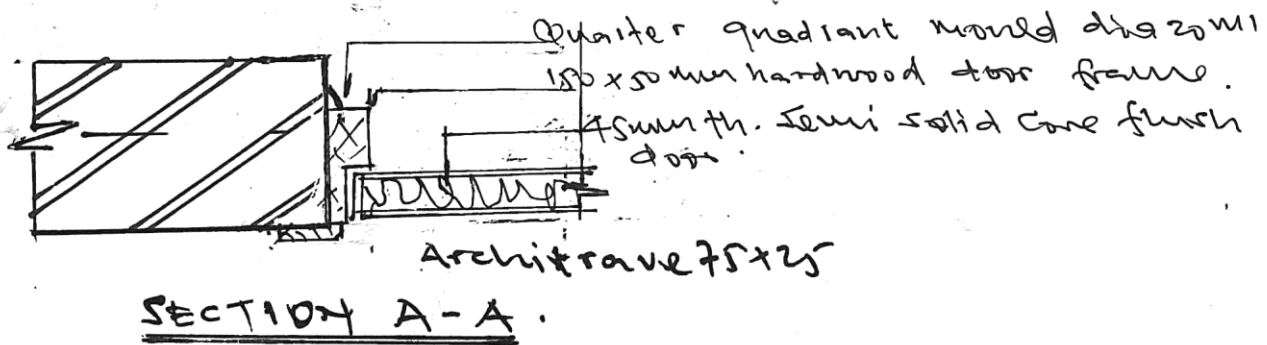 Quarter quadrant mould dia 20mm
150 x 50mm hardwood door frame.
45mm th. semi solid core flush
door.
Architrave 75x25
SECTION A-A.